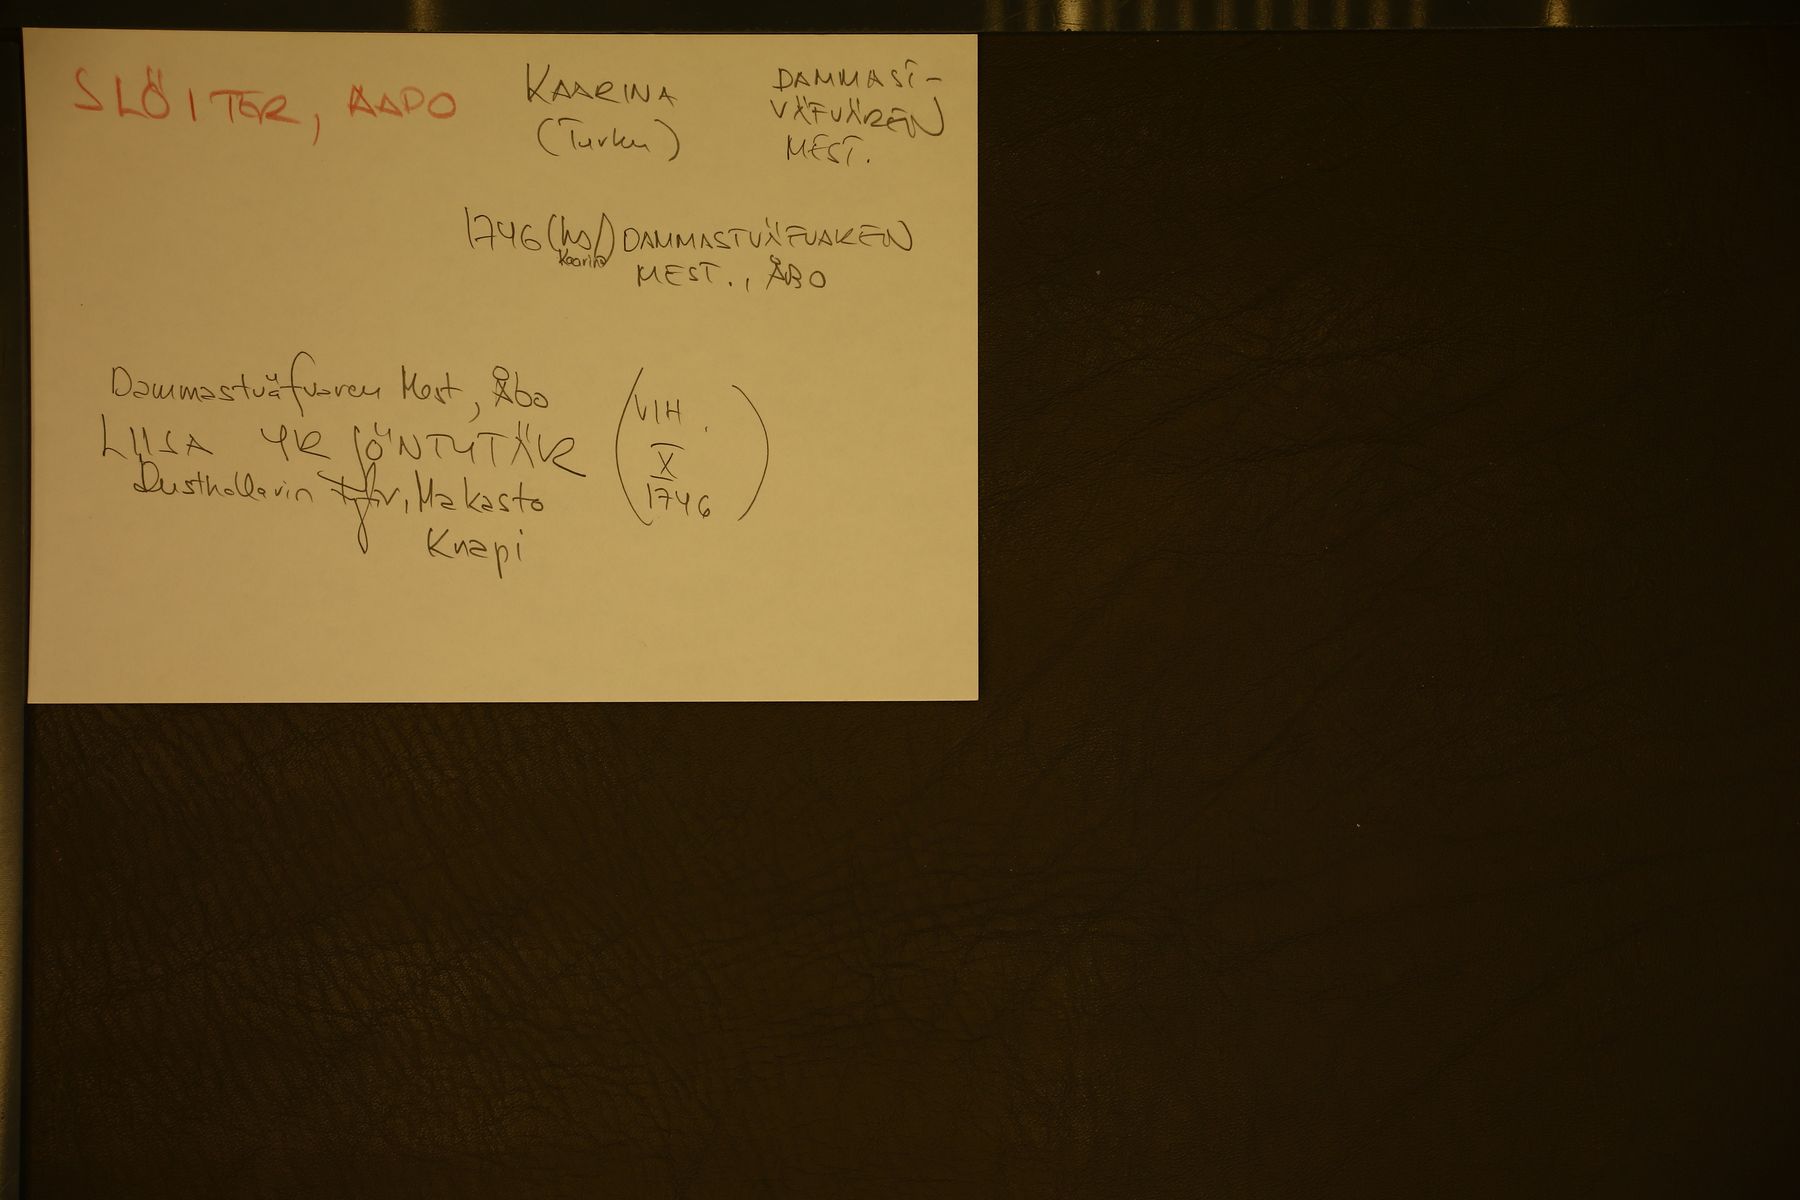 SLÖITER, AAPO
KAARINA
(Turku)
DAMMAST-
VÄFVÄREN
MEST.
1746 (hs/) DAMMASTVÄFVAREN
Kaarina
MEST., ÅBO
Dammastväfvaren Mest, Åbo
LIISA YRJÖNTYTÄR
Rusthollarin tytär, Makasto
Knapi
(VIH.
X
1746)